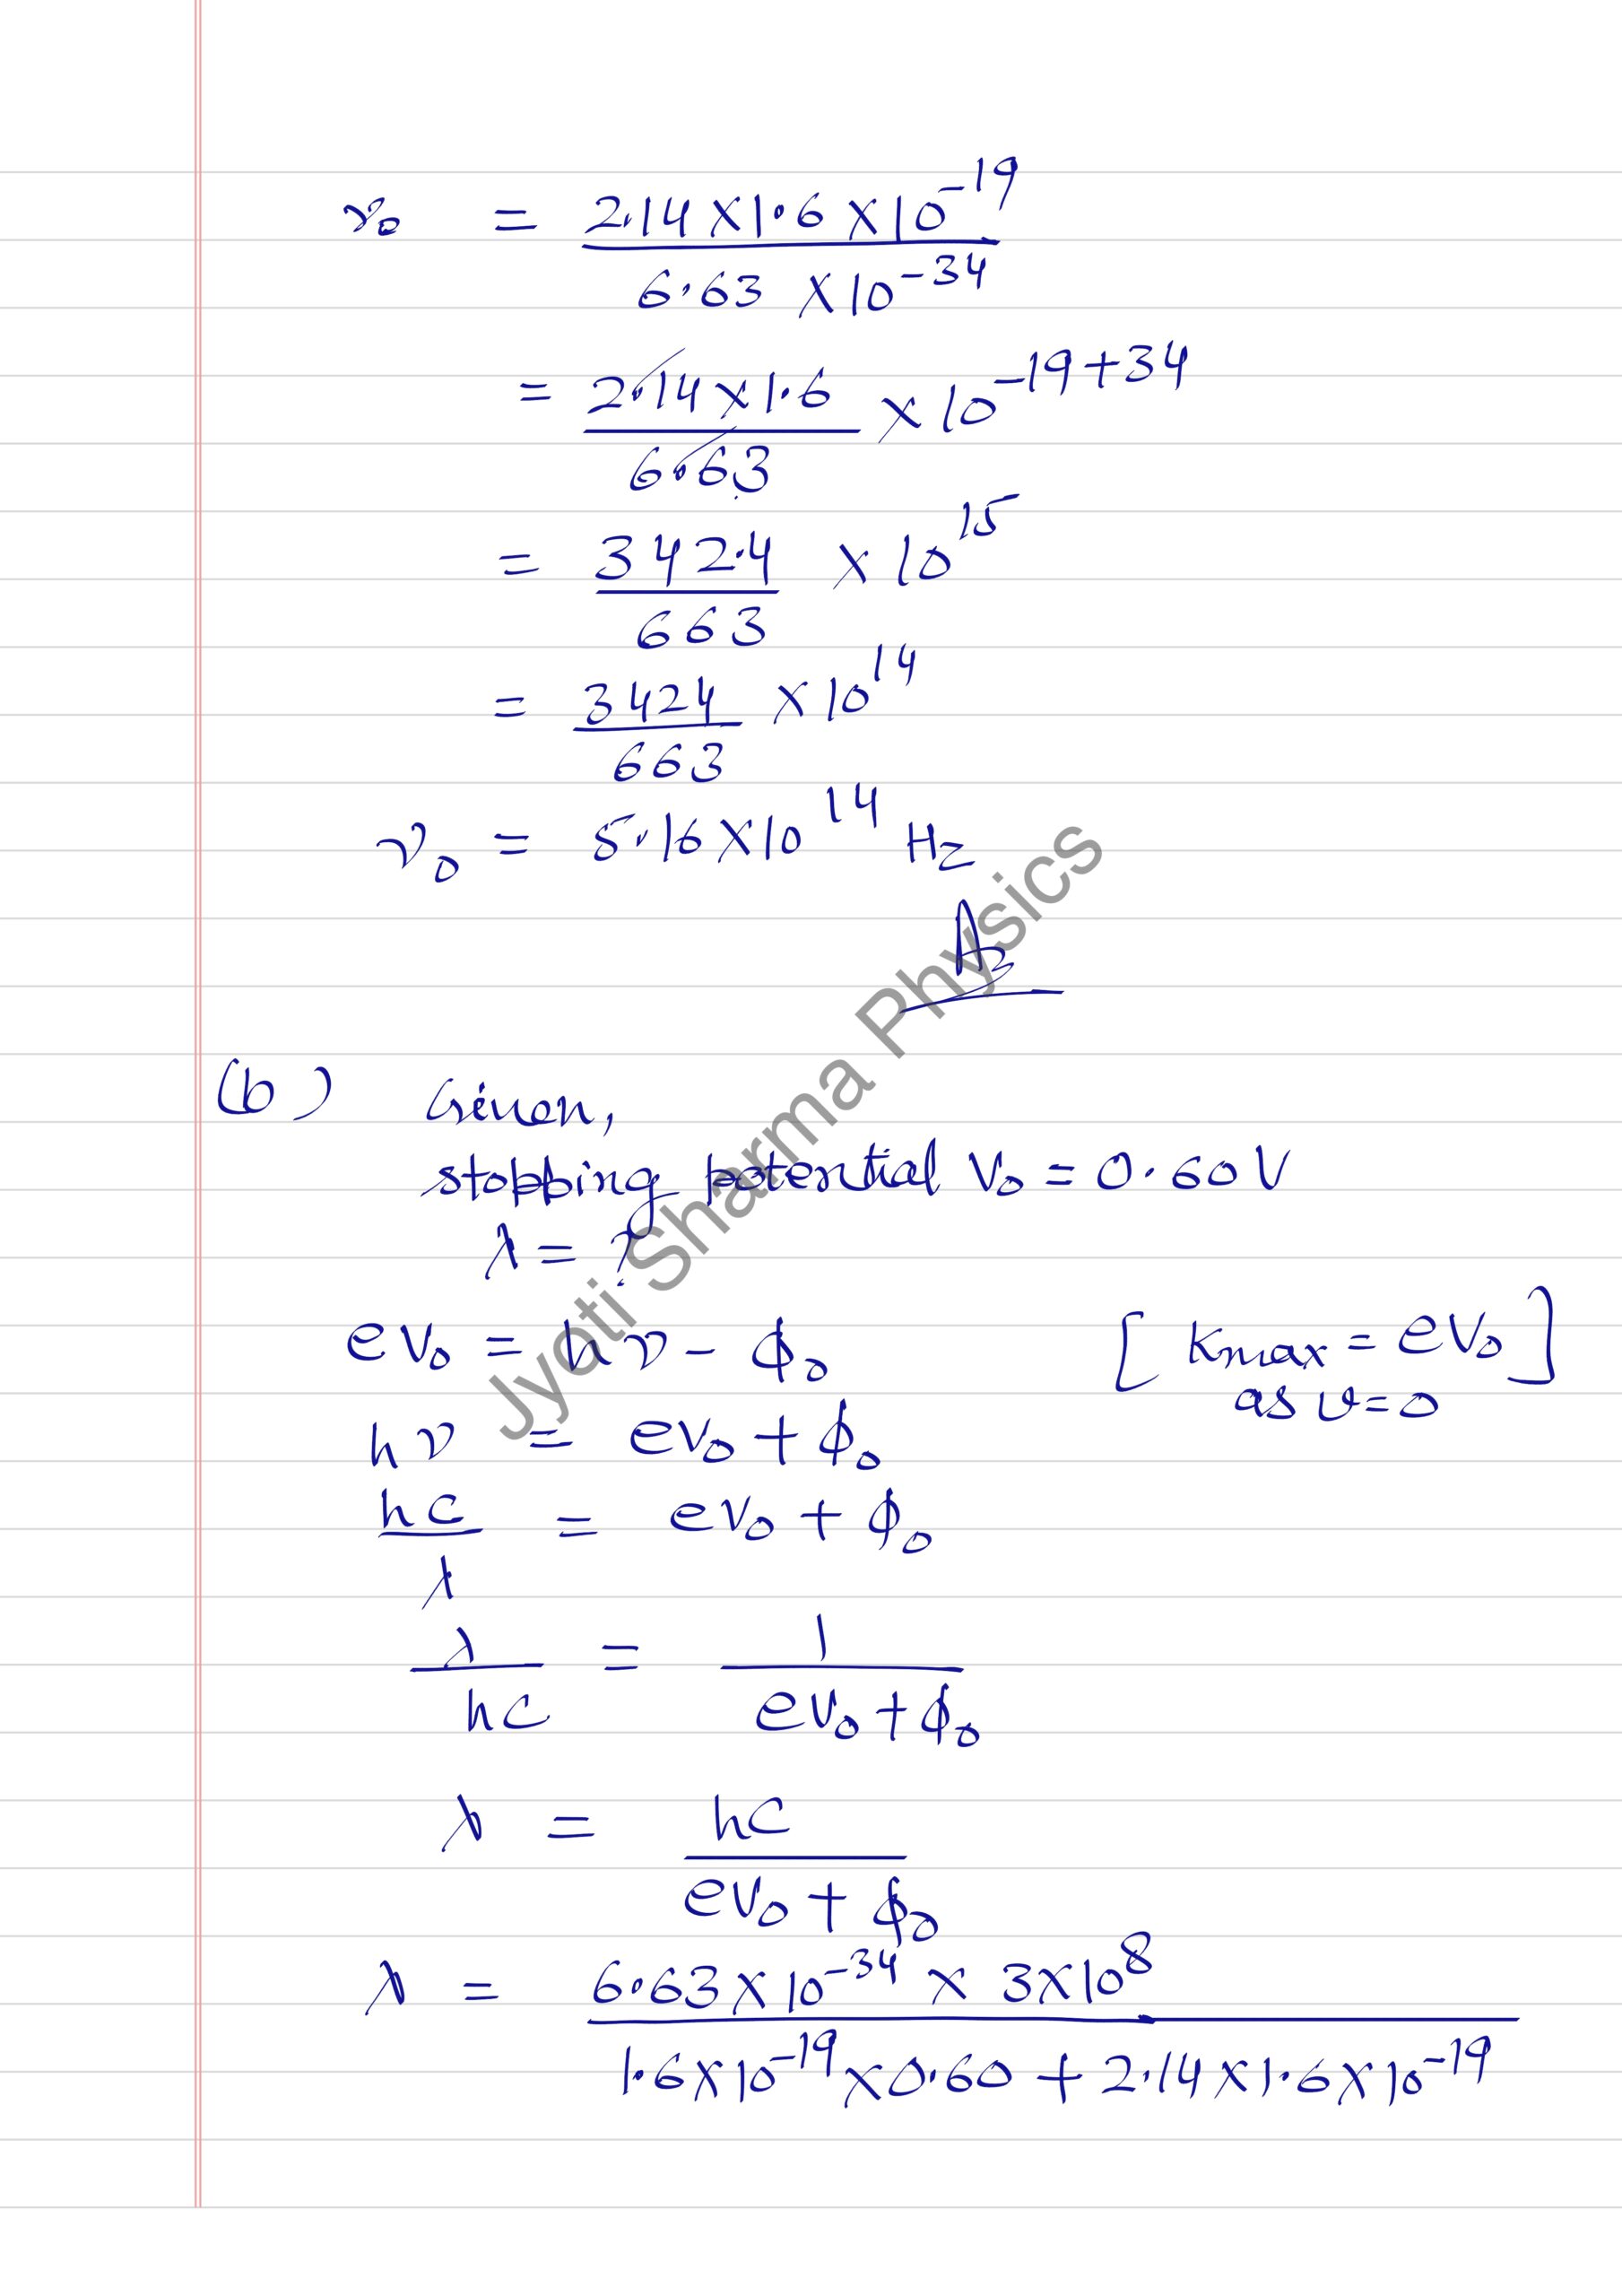 ν₀ = 2.14 × 1.6 × 10⁻¹⁹ / 6.63 × 10⁻³⁴
= 2.14 × 1.6 / 6.63 × 10⁻¹⁹⁺³⁴
= 342.4 / 663 × 10¹⁵
= 3424 / 663 × 10¹⁴
ν₀ = 5.16 × 10¹⁴ Hz
(b) Given,
stopping potential V₀ = 0.60V
λ = ?
eV₀ = hν - ϕ₀ [Kmax = eV₀]
as v = 0
hν = eV₀ + ϕ₀
hc / λ = eV₀ + ϕ₀
λ / hc = 1 / eV₀ + ϕ₀
λ = hc / eV₀ + ϕ₀
λ = 6.63 × 10⁻³⁴ × 3 × 10⁸ / 1.6 × 10⁻¹⁹ × 0.60 + 2.14 × 1.6 × 10⁻¹⁹
Jyoti Sharma Physics